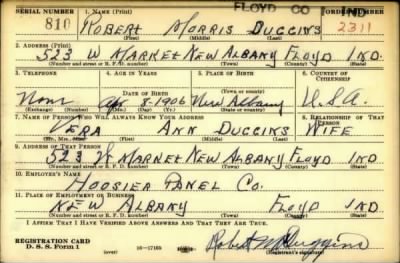 FLOYD CO IND
SERIAL NUMBER 1. NAME (Print) ORDER NUMBER
810 ROBERT MORRIS DUGGINS 2311
(First) (Middle) (Last)
2. ADDRESS (Print)
523 W MARKET NEW ALBANY FLOYD IND.
(Number and street or R. F. D. number) (Town) (County) (State)
3. TELEPHONE 4. AGE IN YEARS 5. PLACE OF BIRTH 6. COUNTRY OF CITIZENSHIP
DATE OF BIRTH
None Apr 8-1906 New Albany U.S.A.
(Exchange) (Number) (Mo.) (Day) (Yr.) (State or country)
7. NAME OF PERSON WHO WILL ALWAYS KNOW YOUR ADDRESS 8. RELATIONSHIP OF THAT PERSON
VERA ANN DUGGINS WIFE
(Mr., Mrs., Miss) (First) (Middle) (Last)
9. ADDRESS OF THAT PERSON
523 W MARKET NEW ALBANY FLOYD IND
(Number and street or R. F. D. number) (Town) (County) (State)
10. EMPLOYER'S NAME
HOOSIER PANEL CO.
11. PLACE OF EMPLOYMENT OR BUSINESS
NEW ALBANY FLOYD IND
(Number and street or R. F. D. number) (Town) (County) (State)
I AFFIRM THAT I HAVE VERIFIED ABOVE ANSWERS AND THAT THEY ARE TRUE.
REGISTRATION CARD
D. S. S. Form 1 16-17105 Robert M Duggins
(Registrant's signature)